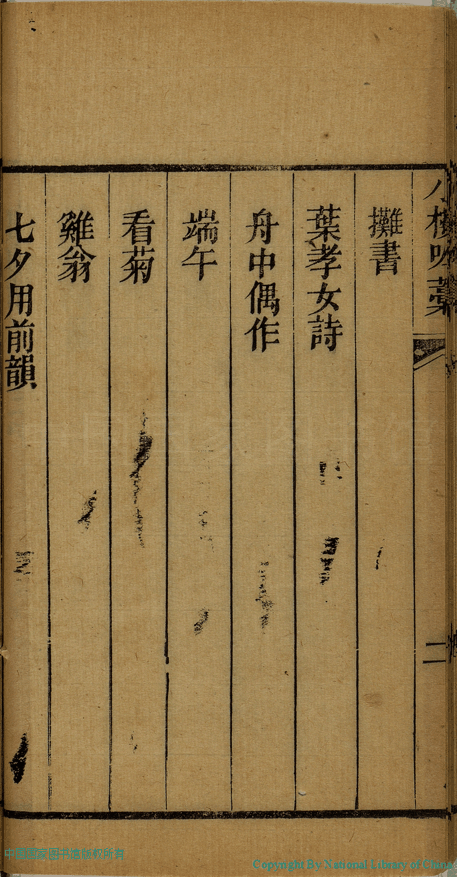 小樓吟藁
二
攤書
葉孝女詩
舟中偶作
端午
看菊
雞翁
七夕用前韻
中國國家圖書館版權所有
Copyright By National Library of China